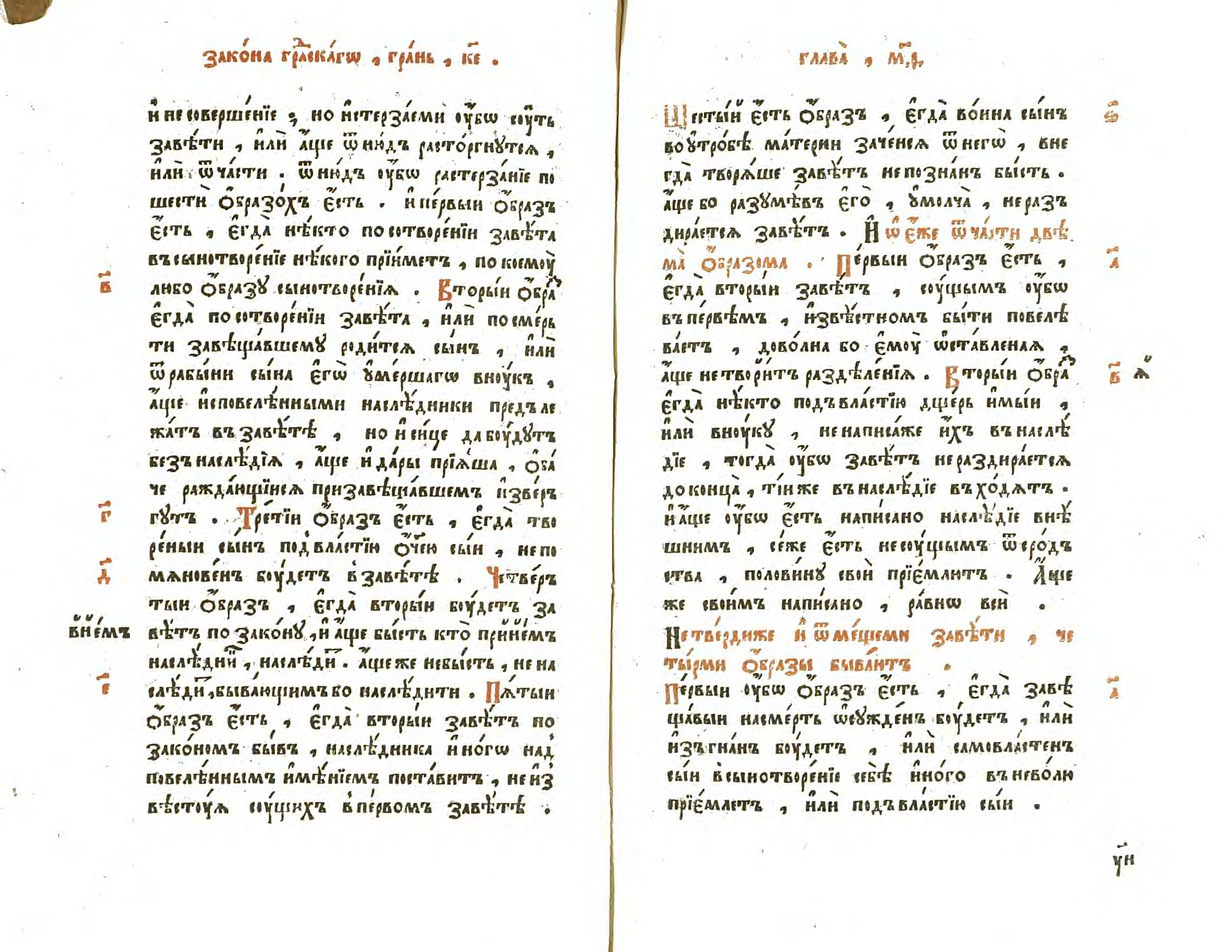 зако́на гра́дскагѡ , гра́нь , к҃е .
и҆ не соверше́нїе , но и҆стерза́еми ᲂу҆́бѡ сꙋ́ть
завѣ́ти , и҆лѝ а҆́ще ѿню́дъ расто́ргнꙋтся ,
и҆лѝ ѿча́сти . ѿню́дъ ᲂу҆́бѡ растерза́нїе по
шестѝ ѻ҆́бразохъ є҆́сть . и҆ пе́рвыи ѻ҆́бразъ
є҆́сть , є҆гда̀ нѣ́кто посотворе́нїи завѣ́та
в҃
въсынотворе́нїе нѣ́кого прїи́метъ , по коемꙋ̀
любо ѻ҆́бразꙋ сынотворе́нїѧ . Вторы́и ѻ҆́бра
є҆гда̀ посотворе́нїи завѣ́та , и҆лѝ посме́рь
ти завѣща́вшемꙋ роди́тся сы́нъ , и҆лѝ
ѿ рабы́ни сы́на є҆гѡ̀ ᲂу҆ме́ршагѡ внꙋ́къ ,
а҆́ще и҆споведе́нными наслѣ́дники предъле
жа́тъ въ завѣ́тѣ , но и҆ си́це да бꙋ́дꙋтъ
безъ наслѣ́дїѧ , а҆́ще и҆ да́ры прїѧ́ша , ѻ҆ба́
че ражда́ющїися призавѣща́вшемъ и҆зве́рг
г҃
гꙋтъ . Тре́тїи ѻ҆́бразъ є҆́сть , є҆гда̀ тво
ре́ныи сы́нъ под̾ вла́стїю ѻ҆́чею сы́и , не по
д҃
мѧнове́нъ бꙋ́детъ в̾ завѣ́тѣ . Четве́р
тыи ѻ҆́бразъ , є҆гда̀ вторы́и бꙋ́детъ за
вѣ́тъ по зако́нꙋ , и҆ а҆́ще бы́сть кто̀
наслѣ́дни , наслѣ́ди . а҆́ще же небы́сть , не на
є҃
слѣ́ди , быва́ющимъ бо наслѣ́дити . Пѧ́тыи
ѻ҆́бразъ є҆́сть , є҆гда̀ вторы́и завѣ́тъ по
зако́номъ бы́въ , наслѣ́дника и҆но́гѡ над̾
повеле́ннымъ и҆мѣ́нїемъ поста́витъ , не и҆з̾
вѣ́стꙋѧ сꙋ́щихъ в̾ пе́рвомъ завѣ́тѣ .
глава̀ , м҃ѳ .
ѕ҃
Шесты́и є҆́сть ѻ҆́бразъ , є҆гда̀ во́ина сы́нъ
воᲂутро́бѣ ма́терни заче́нся ѿ негѡ̀ , вне
гда̀ творѧ́ше завѣ́тъ непозна́нъ бы́сть .
а҆́ще бо разꙋмѣ́въ є҆го̀ , ᲂу҆молча̀ , не раз
дира́ется завѣ́тъ . И҆ ѡ҆ е҆́же ѿча́сти двѣ
а҃
ма̀ ѻ҆́бразома . Пе́рвыи ѻ҆́бразъ є҆́сть ,
є҆гда̀ вторы́и завѣ́тъ , сꙋ́щымъ ᲂу҆́бѡ
въ пе́рвѣмъ , и҆звѣ́стномъ бы́ти повелѣ
ва́етъ , дово́лна бо є҆мꙋ̀ ѡ҆ставле́наѧ ,
в҃
а҆́ще не твори́тъ раздѣле́нїѧ . Вторы́и ѻ҆́бра
є҆гда̀ нѣ́кто подъ вла́стїю дще́рь и҆мы́и ,
и҆лѝ внꙋ́кꙋ , не написа́же и҆́хъ въ наслѣ́
дїе , тогда̀ ᲂу҆́бѡ завѣ́тъ не раздира́ется
до конца̀ , ті́и же въ наслѣ́дїе въхо́дѧтъ .
и҆ а҆́ще ᲂу҆́бѡ є҆́сть написано наслѣ́дїе внѣ́
шнимъ , се́же є҆́сть не сꙋ́щымъ ѿ сро́дъ
ства , полови́нꙋ свои̇̀ прїе́млютъ . А҆́ще
же свои́мъ написано , ра́внѡ всѝ .
Не тве́рди же и҆ ѿме́щеми завѣ́ти , че
ты́рми ѻ҆́бразы быва́ютъ .
а҃
Пе́рвыи ᲂу҆́бѡ ѻ҆́бразъ є҆́сть , є҆гда̀ завѣ
ща́выи насме́рть ѡ҆сꙋжде́нъ бꙋ́детъ , и҆лѝ
и҆зъгна́нъ бꙋ́детъ , и҆лѝ самовла́стенъ
сы́и в̾ сынотворе́нїе себѐ и҆но́го въ нево́лю
прїе́млетъ , и҆лѝ подъ вла́стїю сы́и .
ун҃